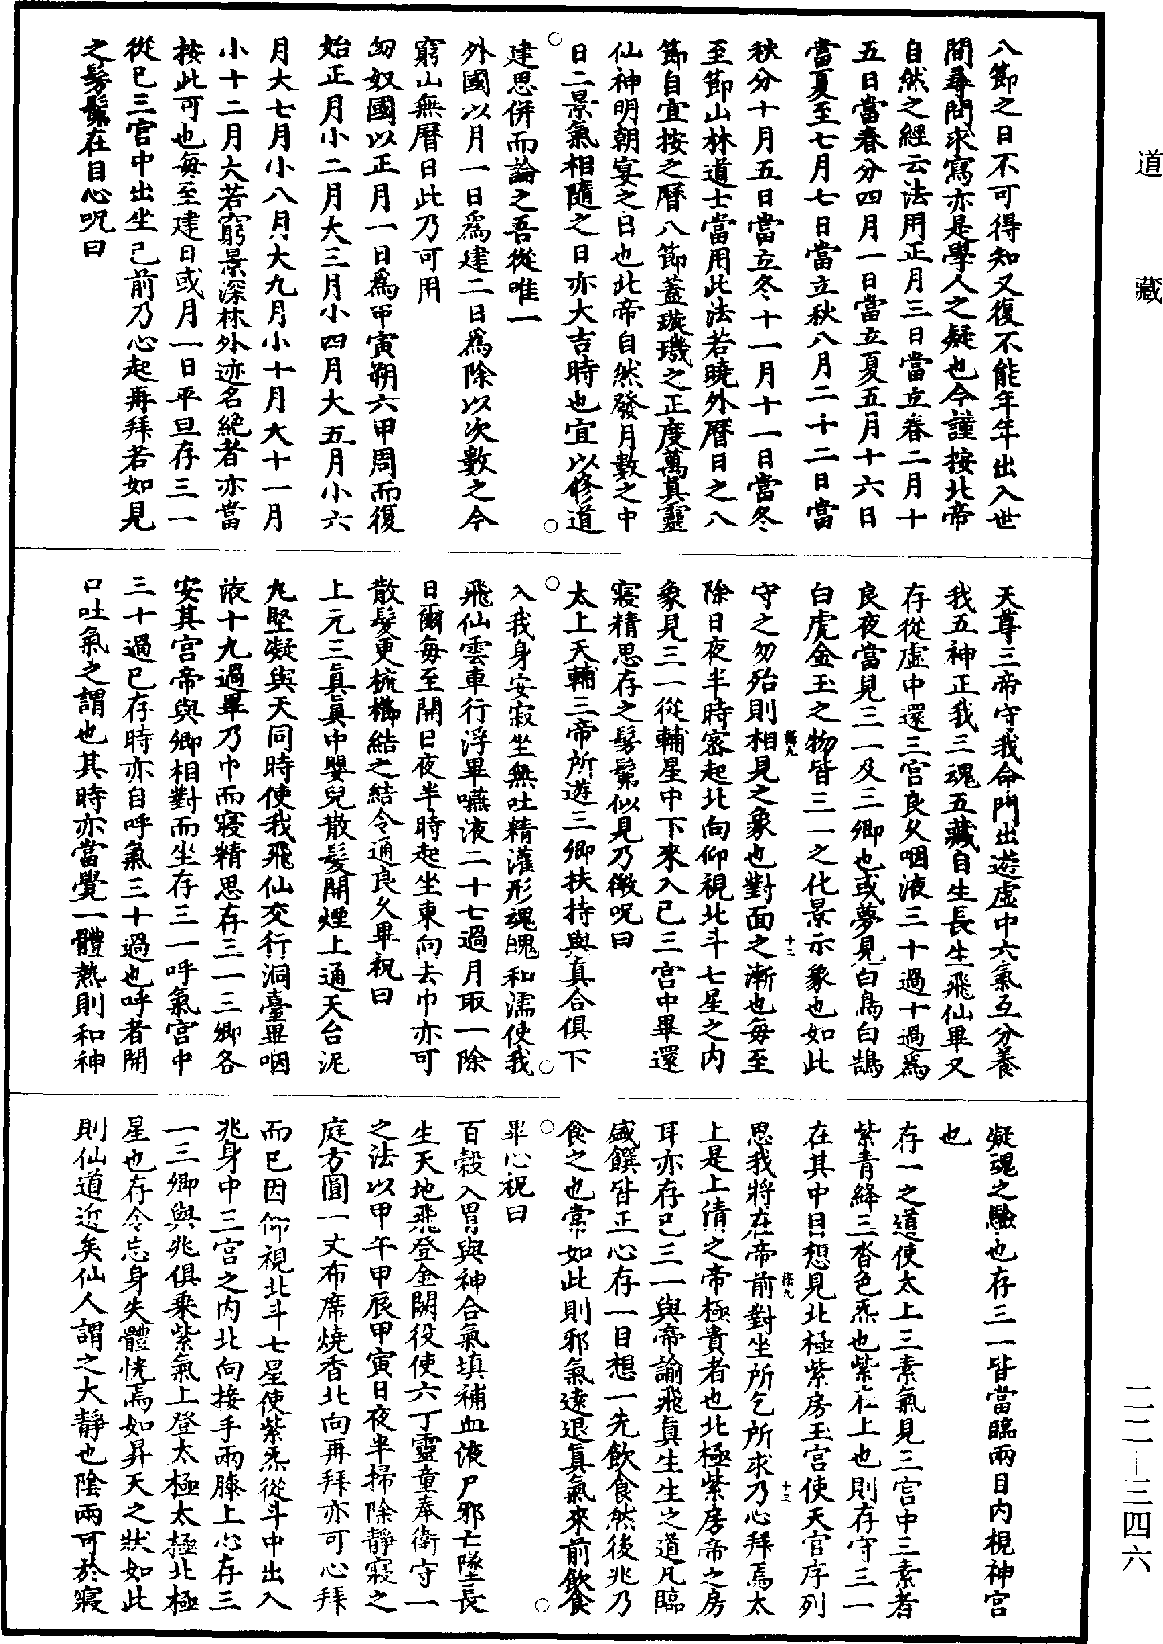 道藏
二二—三四六
八節之日不可得知又復不能年年出入世
間尋問求寫亦是學人之疑也今謹按北帝
自然之經云法用正月三日當立春二月十
五日當春分四月一日當立夏五月十六日
當夏至七月七日當立秋八月二十二日當
秋分十月五日當立冬十一月十一日當冬
至節山林道士當用此法若曉外曆日之八
節自宜按之曆八節蓋璇璣之正度萬真靈
仙神明朝宴之日也北帝自然發月數之中
日二景氣相隨之日亦大吉時也宜以修道
建思併而論之吾從唯一
外國以月一日為建二日為除以次數之令
窮山無曆日此乃可用
匈奴國以正月一日為甲寅朔六甲周而復
始正月小二月大三月小四月大五月小六
月大七月小八月大九月小十月大十一月
小十二月大若窮景深林外迹名絕者亦當
按此可也每至建日或月一日平旦存三一
從己三宮中出坐己前乃心起再拜若如見
之髣髴在目心呪曰
天尊三帝守我命門出遊虛中六氣互分養
我五神正我三魂五藏自生長生飛仙畢又
存從虛中還三宮良久咽液三十過十過為
良夜當見三一及三卿也或夢見白鳥白鵠
白虎金玉之物皆三一之化景示象也如此
守之勿殆則相見之象也對面之漸也每至
除日夜半時密起北向仰視北斗七星之內
象見三一從輔星中下來入己三宮中畢還
寢精思存之髣髴似見乃微呪曰
太上天輔三帝所遊三卿扶持與真合俱下
入我身安寂坐無吐精灌形魂魄和濡使我
飛仙雲車行浮畢嚥液二十七過月取一除
日爾每至開日夜半時起坐東向去巾亦可
散髮更梳櫛結之結令通良久畢祝曰
上元三真真中嬰兒散髮開煙上通天台泥
丸堅凝與天同時使我飛仙交行洞臺畢咽
液十九過畢乃巾而寢精思存三一三卿各
安其宮帝與卿相對而坐存三一呼氣宮中
三十過已存時亦自呼氣三十過也呼者開
口吐氣之謂也其時亦當覺一體熱則和神
凝魂之驗也存三一皆當臨兩目內視神宮
也
存一之道使太上三素氣見三宮中三素者
紫青絳三沓色炁也紫在上也則存守三一
在其中目想見北極紫房玉宮使天官序列
思我將在帝前對坐所乞所求乃心拜焉太
上是上清之帝極貴者也北極紫房帝之房
耳亦存己三一與帝諭飛真生生之道凡臨
盛饌皆正心存一目想一先飲食然後兆乃
食之也常如此則邪氣遠退真氣來前飲食
畢心祝曰
百穀入胃與神合氣填補血液尸邪亡墜長
生天地飛登金闕役使六丁靈童奉衛守一
之法以甲午甲辰甲寅日夜半掃除靜寢之
庭方圓一丈布席燒香北向再拜亦可心拜
而已因仰視北斗七星使紫炁從斗中出入
兆身中三宮之內北向接手兩膝上心存三
一三卿與兆俱乘紫氣上登太極太極北極
星也存令忘身失體恍焉如昇天之狀如此
則仙道近矣仙人謂之大靜也陰雨可於寢